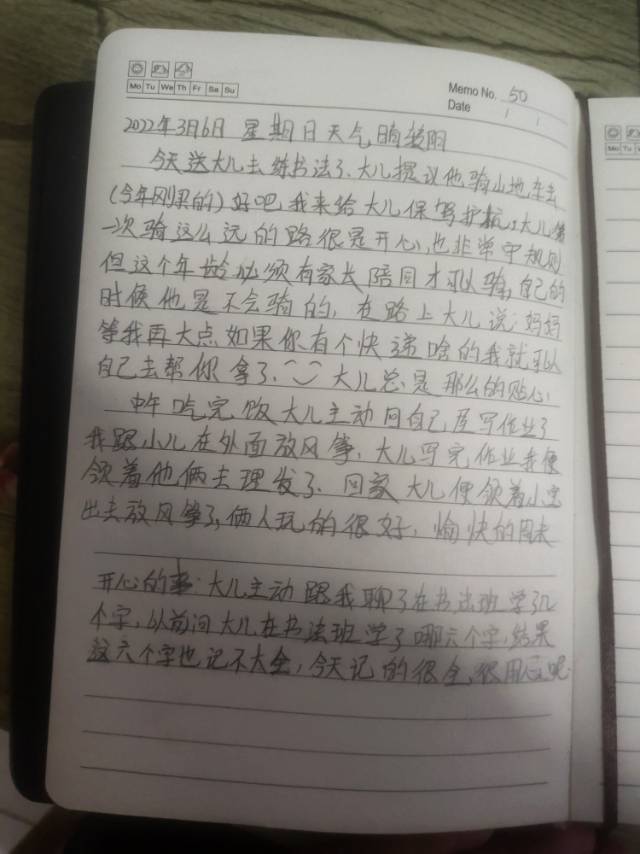 Mo Tu We Th Fr Sa Su
Memo No. 50
Date / /
2022年3月6日 星期日 天气晴转阴
今天送大儿去练书法了、大儿提议他骑山地车去
(今年刚买的)好吧,我来给大儿保驾护航,大儿第
一次骑这么远的路很是开心,也非常守规则
但这个年龄必须有家长陪同才可以骑,自己的
时候他是不会骑的,在路上大儿说:妈妈
等我再大点如果你有个快递啥的我就可以
自己去帮你拿了、大儿总是那么的贴心!
中午吃完饭大儿主动回自己屋写作业了
我跟小儿在外面放风筝,大儿写完作业我便
领着他俩去理发了.回家大儿便领着小宝
出去放风筝了,俩人玩的很好,愉快的周末
开心的事:大儿主动跟我聊了在书法班学了几
个字,以前问大儿在书法班学了哪六个字,结果
这六个字也记不大全,今天记的很全,很用心呢
Mo Tu